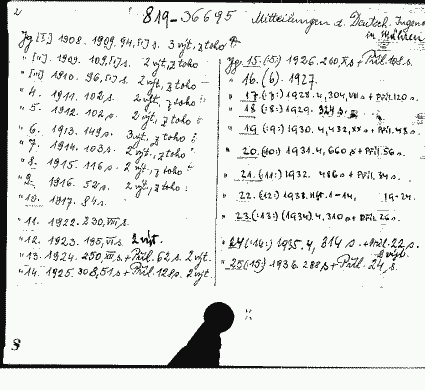 2
819-36695
Mitteilungen d. Deutsch. Ingen
in Mähren
Jg [I] 1908. 1909. 94, [I] s. 3 výt, z toho
" [II] 1909. 109, [I] s. 2 výt, z toho
" [III] 1910. 96, [I] s. 2 výt, z toho
" 4. 1911. 102 s. 2 výt, z toho
" 5. 1912. 102 s. 2 výt, z toho
" 6. 1913. 148 s. 3 výt, z toho
" 7. 1914. 103 s. 2 výt, z toho
" 8. 1915. 116 s. 2 výt, z toho
" 9. 1916. 52 s. 2 výt, z toho
" 10. 1917. 84 s.
" 11. 1922. 230, VII s.
" 12. 1923. 195, VI s. 2 výt.
" 13. 1924. 250, VII s. + Příl. 62 s. 2 výt.
" 14. 1925. 308, 51 s + Příl 128 s. 2 výt.
Jg. 15. (:5:) 1926. 260, XX s + Příl. 108 s.
" 16. (6). 1927.
" 17. (:7:) 1928. 4, 304, VIII s + Příl. 120 s.
" 18. (:8:) 1929.
" 19. (:9:) 1930. 4, 432, XX s + Příl. 48 s.
" 20. (:10:) 1931. 4, 660 s + Příl. 56 s.
" 21. (:11:) 1932. 486 s + Příl. 34 s.
" 22. (:12:) 1933. Heft. 1-14, 19-24.
" 23. (:13:) (1934). 4, 310 s + Příl. 26 s.
" 24 (:14:) 1935. 4, 314 s. + Příl. 22 s.
2 výt.
" 25 (:15:) 1936. 288 s + Příl. 24 s.
S